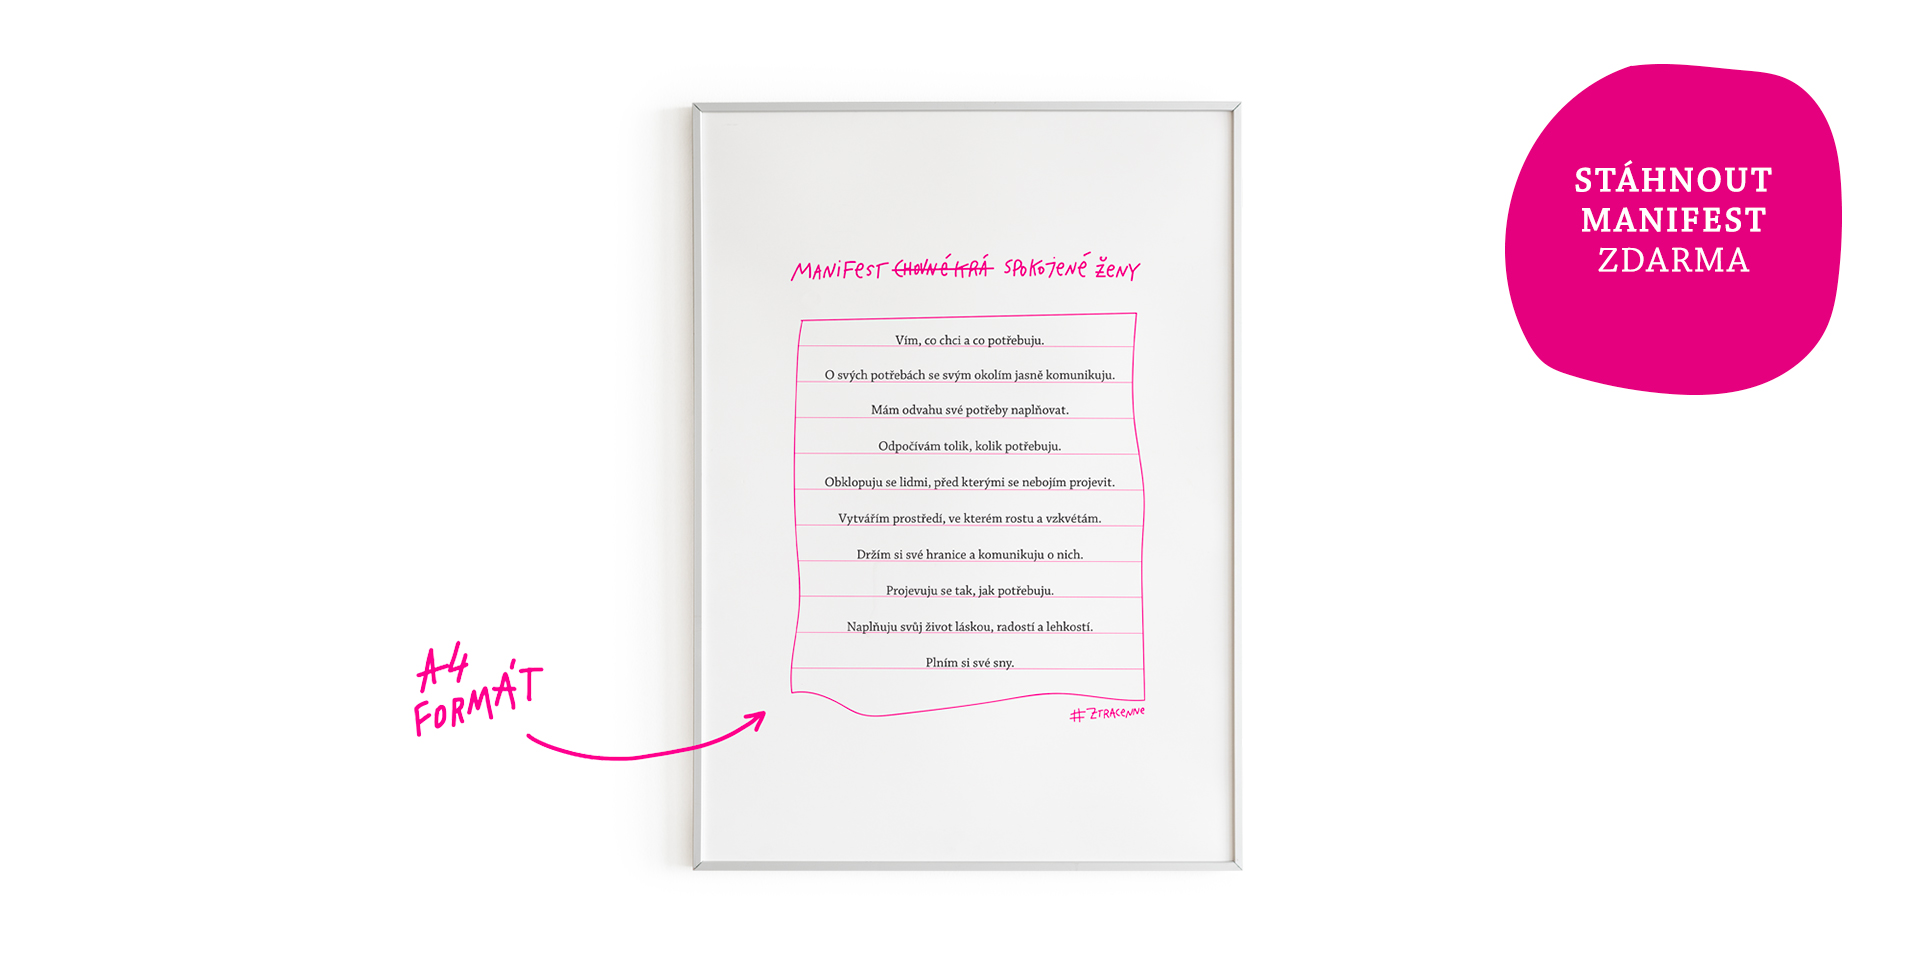 MANIFEST CHOVNÉ KRÁ SPOKOJENÉ ŽENY
Vím, co chci a co potřebuju.
O svých potřebách se svým okolím jasně komunikuju.
Mám odvahu své potřeby naplňovat.
Odpočívám tolik, kolik potřebuju.
Obklopuju se lidmi, před kterými se nebojím projevit.
Vytvářím prostředí, ve kterém rostu a vzkvétám.
Držím si své hranice a komunikuju o nich.
Projevuju se tak, jak potřebuju.
Naplňuju svůj život láskou, radostí a lehkostí.
Plním si své sny.
#ZTRACENNE
A4
FORMÁT
STÁHNOUT
MANIFEST
ZDARMA